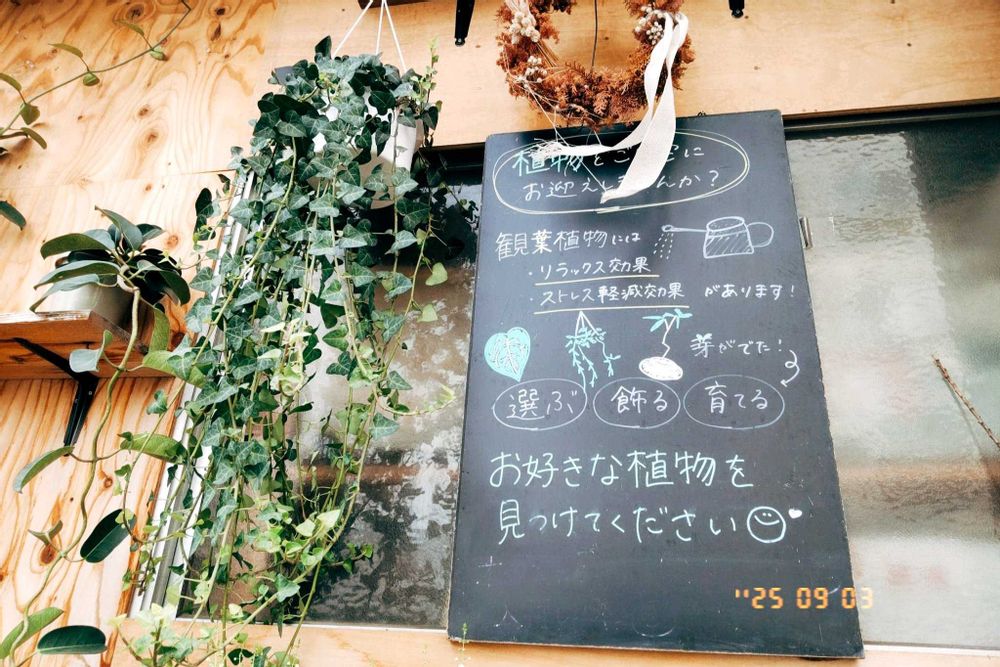 植物をご
に
お迎えし
んか？
観葉植物には
・リラックス効果
・ストレス軽減効果 があります！
芽がでた！
選ぶ 飾る 育てる
お好きな植物を
見つけてください
'25 09 03